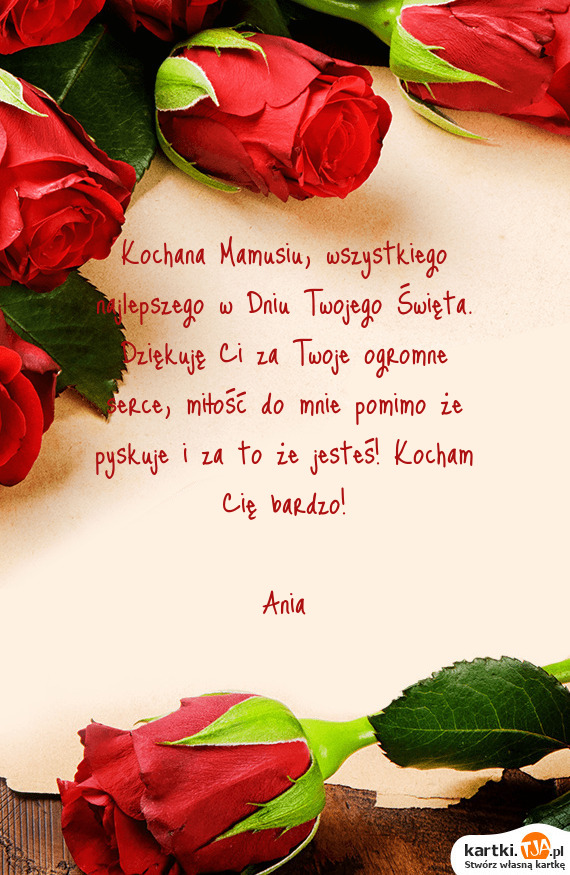 Kochana Mamusiu, wszystkiego
najlepszego w Dniu Twojego Święta.
Dziękuję Ci za Twoje ogromne
serce, miłość do mnie pomimo że
pyskuje i za to że jesteś! Kocham
Cię bardzo!
Ania
kartki.TJA.pl
Stwórz własną kartkę